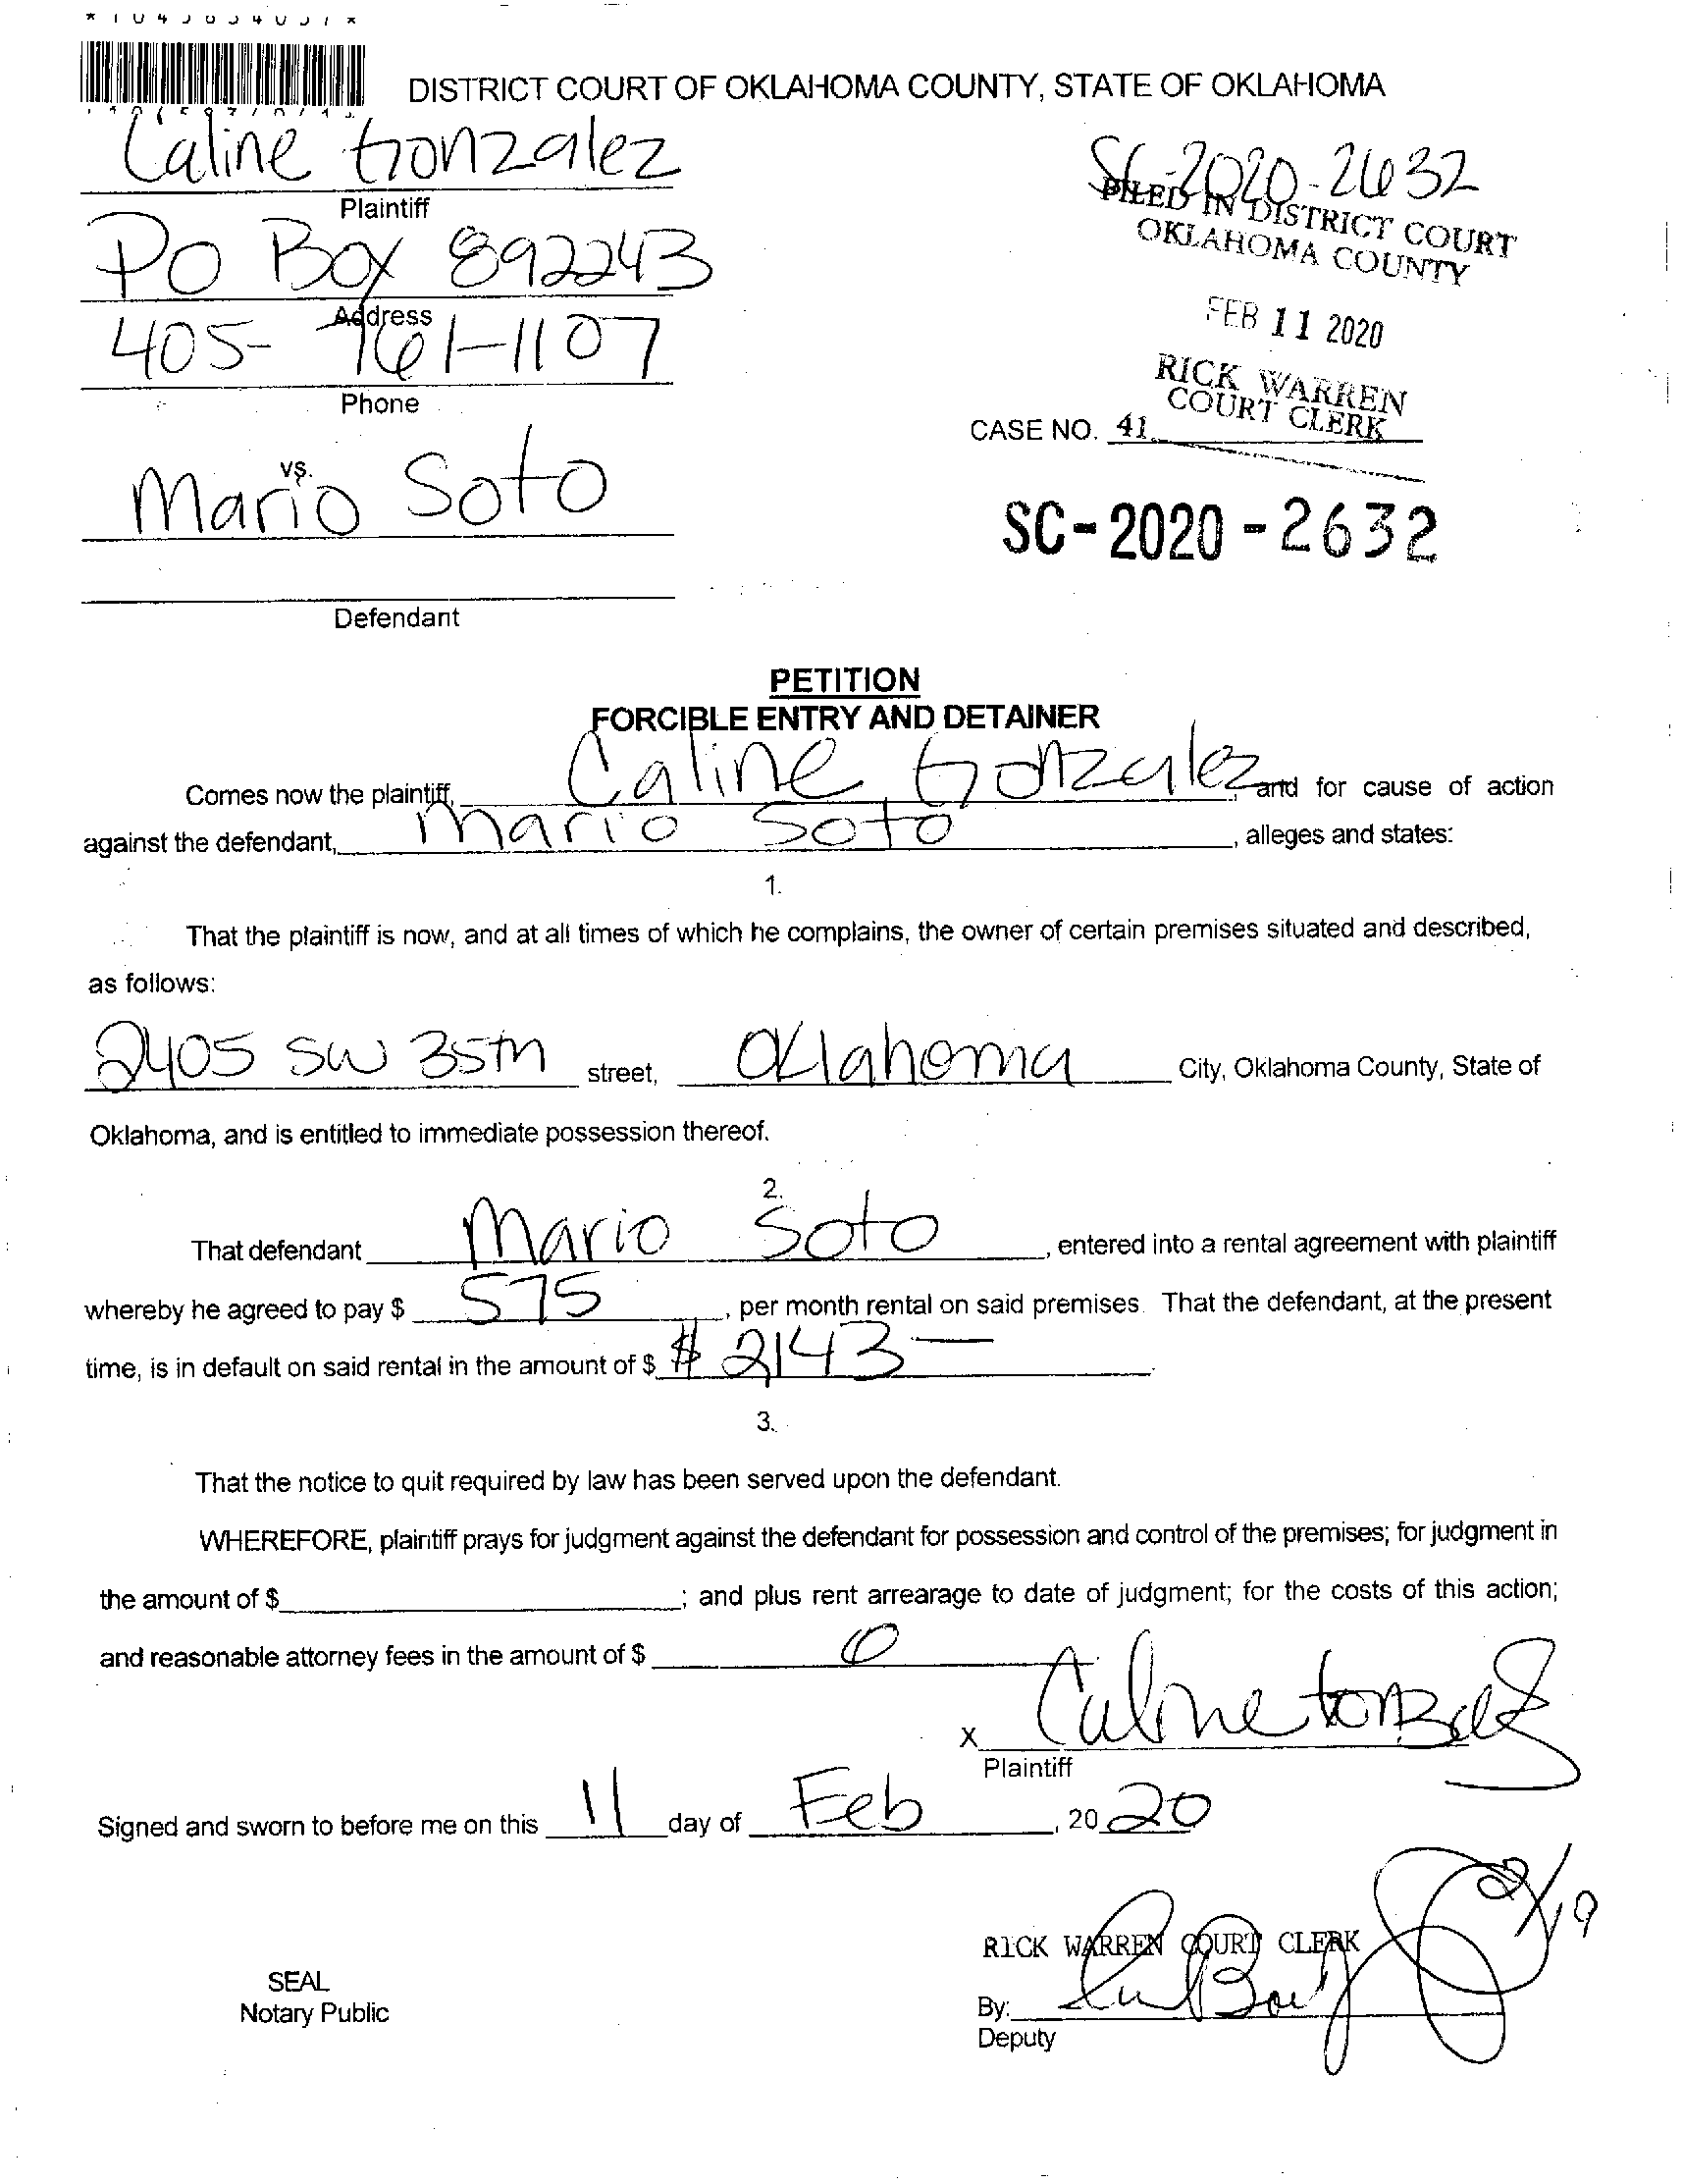 DISTRICT COURT OF OKLAHOMA COUNTY, STATE OF OKLAHOMA
Caline Gonzalez
Plaintiff
PO Box 892243
Address
405-761-1107
Phone
vs.
Mario Soto
Defendant
SC-2020-2632
FILED IN DISTRICT COURT
OKLAHOMA COUNTY
FEB 11 2020
RICK WARREN
COURT CLERK
CASE NO. 41
SC-2020-2632
PETITION
FORCIBLE ENTRY AND DETAINER
Comes now the plaintiff, Caline Gonzalez, and for cause of action
against the defendant, Mario Soto, alleges and states:
1.
That the plaintiff is now, and at all times of which he complains, the owner of certain premises situated and described,
as follows:
2405 SW 35th street, Oklahoma City, Oklahoma County, State of
Oklahoma, and is entitled to immediate possession thereof.
2.
That defendant Mario Soto, entered into a rental agreement with plaintiff
whereby he agreed to pay $ 575, per month rental on said premises. That the defendant, at the present
time, is in default on said rental in the amount of $ $ 2143 —.
3.
That the notice to quit required by law has been served upon the defendant.
WHEREFORE, plaintiff prays for judgment against the defendant for possession and control of the premises; for judgment in
the amount of $ ; and plus rent arrearage to date of judgment; for the costs of this action;
and reasonable attorney fees in the amount of $ 0
X Caline Gonzalez
Plaintiff
Signed and sworn to before me on this 11 day of Feb, 20 20
2/19
RICK WARREN COURT CLERK
SEAL
Notary Public
By:
Deputy